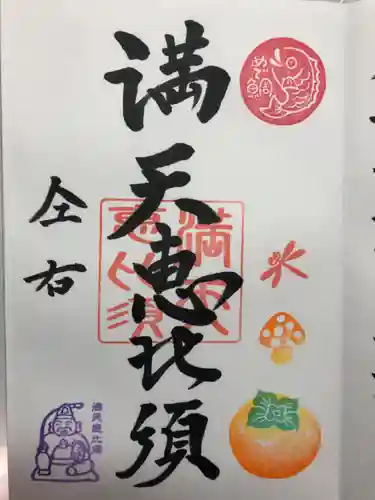 満天恵比須
仝右
めで鯛
満天
恵比須
満天恵比須